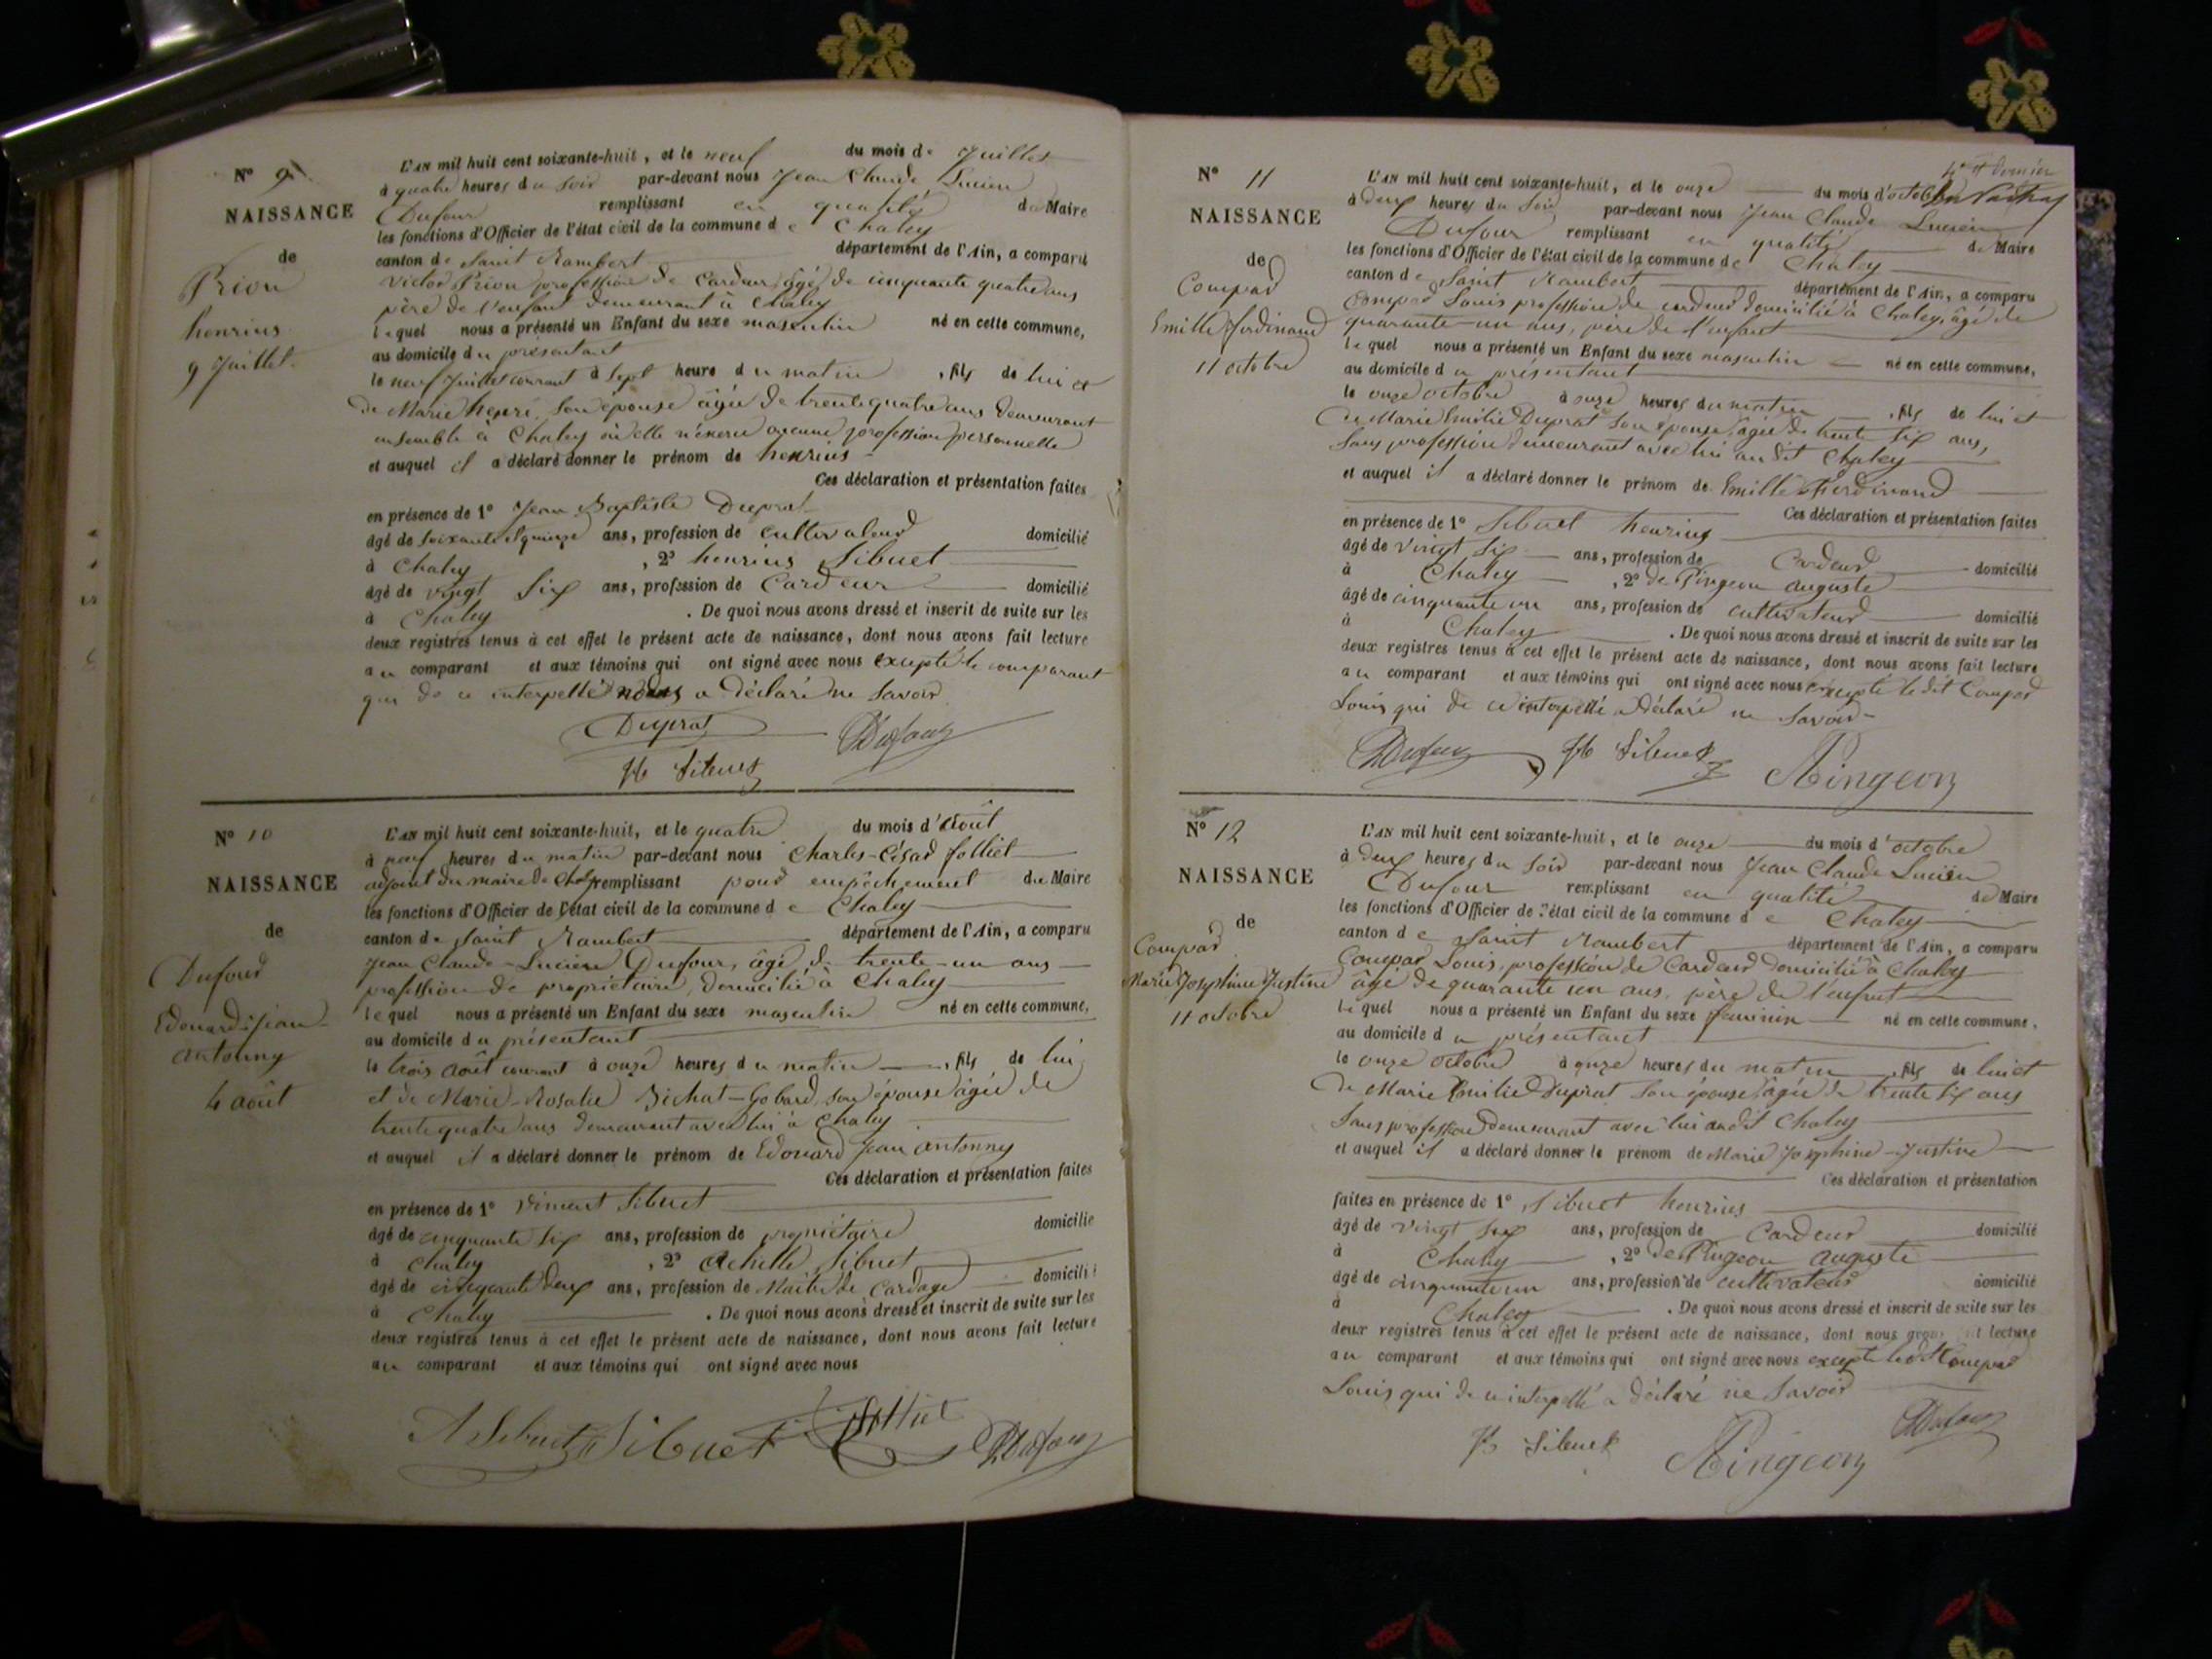 N° 9
NAISSANCE
de
Prion
henrius
9 Juillet.
L'AN mil huit cent soixante-huit, et le neuf du mois de Juillet
à quatre heures du soir par-devant nous Jean Claude Lucien
Dufour remplissant en qualité de Maire
les fonctions d'Officier de l'état civil de la commune de Chaley
canton de Saint Rambert département de l'Ain, a comparu
Victor Prion profession de cardeur, âgé de cinquante quatre ans
père de l'enfant demeurant à Chaley
lequel nous a présenté un Enfant du sexe masculin né en cette commune,
au domicile du présentant
le neuf Juillet courant à sept heure du matin, fils de lui et
de Marie henri, son épouse âgée de trente quatre ans demeurant
ensemble à Chaley où elle n'exerce aucune profession personnelle
et auquel il a déclaré donner le prénom de henrius
Ces déclaration et présentation faites
en présence de 1° Jean Baptiste Duprat
âgé de soixante et quinze ans, profession de cultivateur domicilié
à Chaley, 2° henrius Sibuet
âgé de vingt six ans, profession de Cardeur domicilié
à Chaley. De quoi nous avons dressé et inscrit de suite sur les
deux registres tenus à cet effet le présent acte de naissance, dont nous avons fait lecture
au comparant et aux témoins qui ont signé avec nous excepté le comparant
qui de ce interpellé a déclaré ne savoir
Duprat Dufour
H Sibuet
N° 10
NAISSANCE
de
Dufour
Edouard-jean-
antonny
4 août
L'AN mil huit cent soixante-huit, et le quatre du mois d'Août
à neuf heures du matin par-devant nous Charles-César folliet
adjoint du maire de Chaley remplissant pour empêchement du Maire
les fonctions d'Officier de l'état civil de la commune de Chaley
canton de Saint Rambert département de l'Ain, a comparu
Jean Claude-Lucien Dufour, âgé de trente-un ans
profession de propriétaire, domicilié à Chaley
lequel nous a présenté un Enfant du sexe masculin né en cette commune,
au domicile du présentant
le trois août courant à onze heures du matin, fils de lui
et de Marie-Rosalie Bichat-Gobard, son épouse âgée de
trente quatre ans demeurant avec lui à Chaley
et auquel il a déclaré donner le prénom de Edouard Jean antonny
Ces déclaration et présentation faites
en présence de 1° Vincent Sibuet
âgé de cinquante six ans, profession de propriétaire domicilié
à Chaley, 2° Achille Sibuet
âgé de cinquante deux ans, profession de Maître de Cardage domicilié
à Chaley. De quoi nous avons dressé et inscrit de suite sur les
deux registres tenus à cet effet le présent acte de naissance, dont nous avons fait lecture
au comparant et aux témoins qui ont signé avec nous
A Sibuet Sibuet folliet Dufour
4e et dernier
N° 11
NAISSANCE
de
Compad
Emille ferdinand
11 octobre
L'AN mil huit cent soixante-huit, et le onze du mois d'octobre
à deux heures du soir par-devant nous Jean Claude Lucien
Dufour remplissant en qualité de Maire
les fonctions d'Officier de l'état civil de la commune de Chaley
canton de Saint Rambert département de l'Ain, a comparu
Compad Louis profession de cardeur domicilié à Chaley, âgé de
quarante-un ans, père de l'enfant
lequel nous a présenté un Enfant du sexe masculin né en cette commune,
au domicile du présentant
le onze octobre à onze heures du matin, fils de lui et
de Marie Emilie Duprat son épouse, âgée de trente six ans,
sans profession demeurant avec lui au dit Chaley
et auquel il a déclaré donner le prénom de Emille Ferdinand
Ces déclaration et présentation faites
en présence de 1° Sibuet henrius
âgé de vingt six ans, profession de Cardeur domicilié
à Chaley, 2° de Pingeon auguste
âgé de cinquante un ans, profession de cultivateur domicilié
à Chaley. De quoi nous avons dressé et inscrit de suite sur les
deux registres tenus à cet effet le présent acte de naissance, dont nous avons fait lecture
au comparant et aux témoins qui ont signé avec nous excepté le dit Compad
Louis qui de ce interpellé a déclaré ne savoir
Dufour H Sibuet Pingeon
N° 12
NAISSANCE
de
Compad
Marie Josephine Justine
11 octobre
L'AN mil huit cent soixante-huit, et le onze du mois d'octobre
à deux heures du soir par-devant nous Jean Claude Lucien
Dufour remplissant en qualité de Maire
les fonctions d'Officier de l'état civil de la commune de Chaley
canton de Saint Rambert département de l'Ain, a comparu
Compad Louis, profession de Cardeur domicilié à Chaley
âgé de quarante un ans, père de l'enfant
lequel nous a présenté un Enfant du sexe féminin né en cette commune,
au domicile du présentant
le onze octobre à onze heures du matin, fils de lui et
de Marie Emilie Duprat son épouse, âgée de trente six ans
sans profession demeurant avec lui au dit Chaley
et auquel il a déclaré donner le prénom de Marie Josephine-Justine
Ces déclaration et présentation
faites en présence de 1° Sibuet henrius
âgé de vingt six ans, profession de Cardeur domicilié
à Chaley, 2° de Pingeon auguste
âgé de cinquante un ans, profession de cultivateur domicilié
à Chaley. De quoi nous avons dressé et inscrit de suite sur les
deux registres tenus à cet effet le présent acte de naissance, dont nous lecture
au comparant et aux témoins qui ont signé avec nous excepté le dit Compad
Louis qui de ce interpellé a déclaré ne savoir
H Sibuet Pingeon Dufour